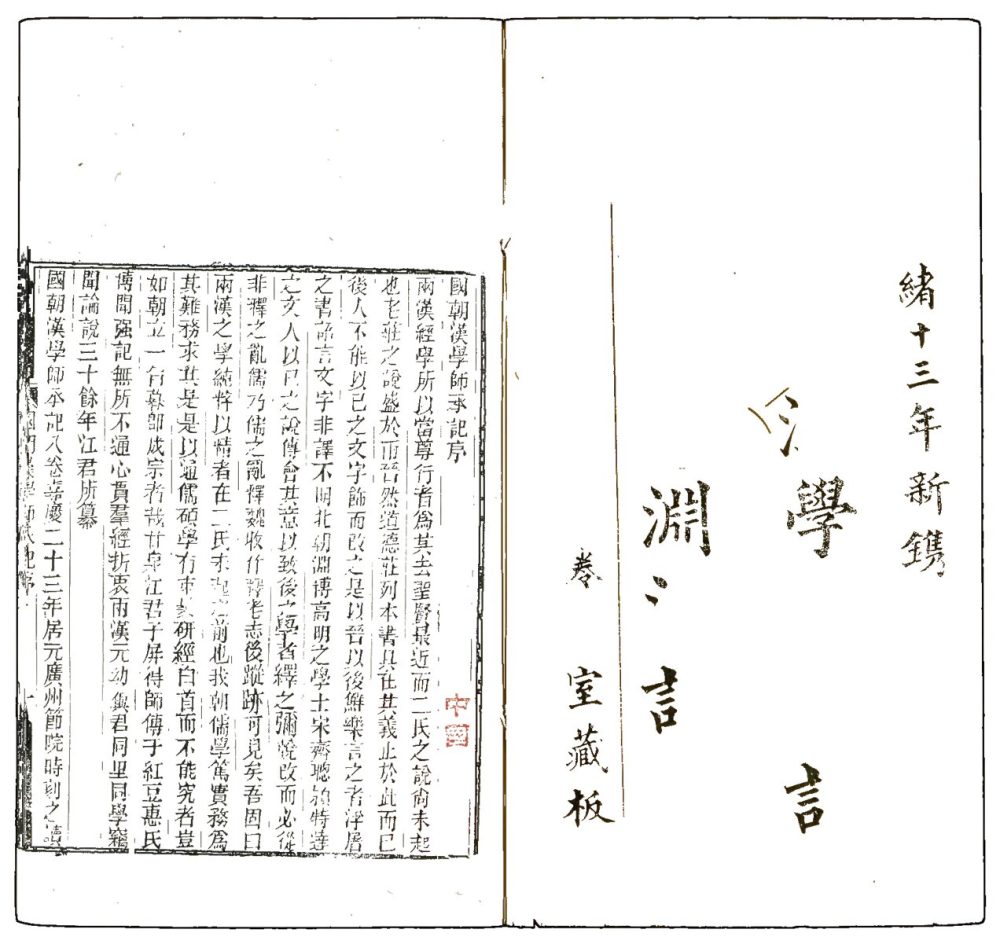 緒十三年新鐫
學言
淵〻言
室藏板
國朝漢學師承記序
兩漢經學所以當尊行者爲其去聖賢最近而二氏之說尚未起
也老莊之說盛於兩晉然道德莊列本書具在其義止於此而已
後人不能以己之文字飾而改之是以晉以後鮮樂言之者浮屠
之書語言文字非譯不明北朝淵博高明之學士宋齊聰穎特達
之文人以己之說傅會其意以致後之學者繹之彌悅改而必從
非釋之亂儒乃儒之亂釋魏收作釋老志後蹤跡可見矣吾固曰
兩漢之學純粹以精者在二氏未起之前也我朝儒學篤實務爲
其難務求其是是以通儒碩學有束髮研經白首而不能究者豈
如朝立一旨暮即成宗者哉甘泉江君子屏得師傳于紅豆惠氏
博聞强記無所不通心貫羣經折衷兩漢元幼與君同里同學竊
聞論說三十餘年江君所纂
國朝漢學師承記八卷嘉慶二十三年居元廣州節院時刻之讀
國朝漢學師承記序